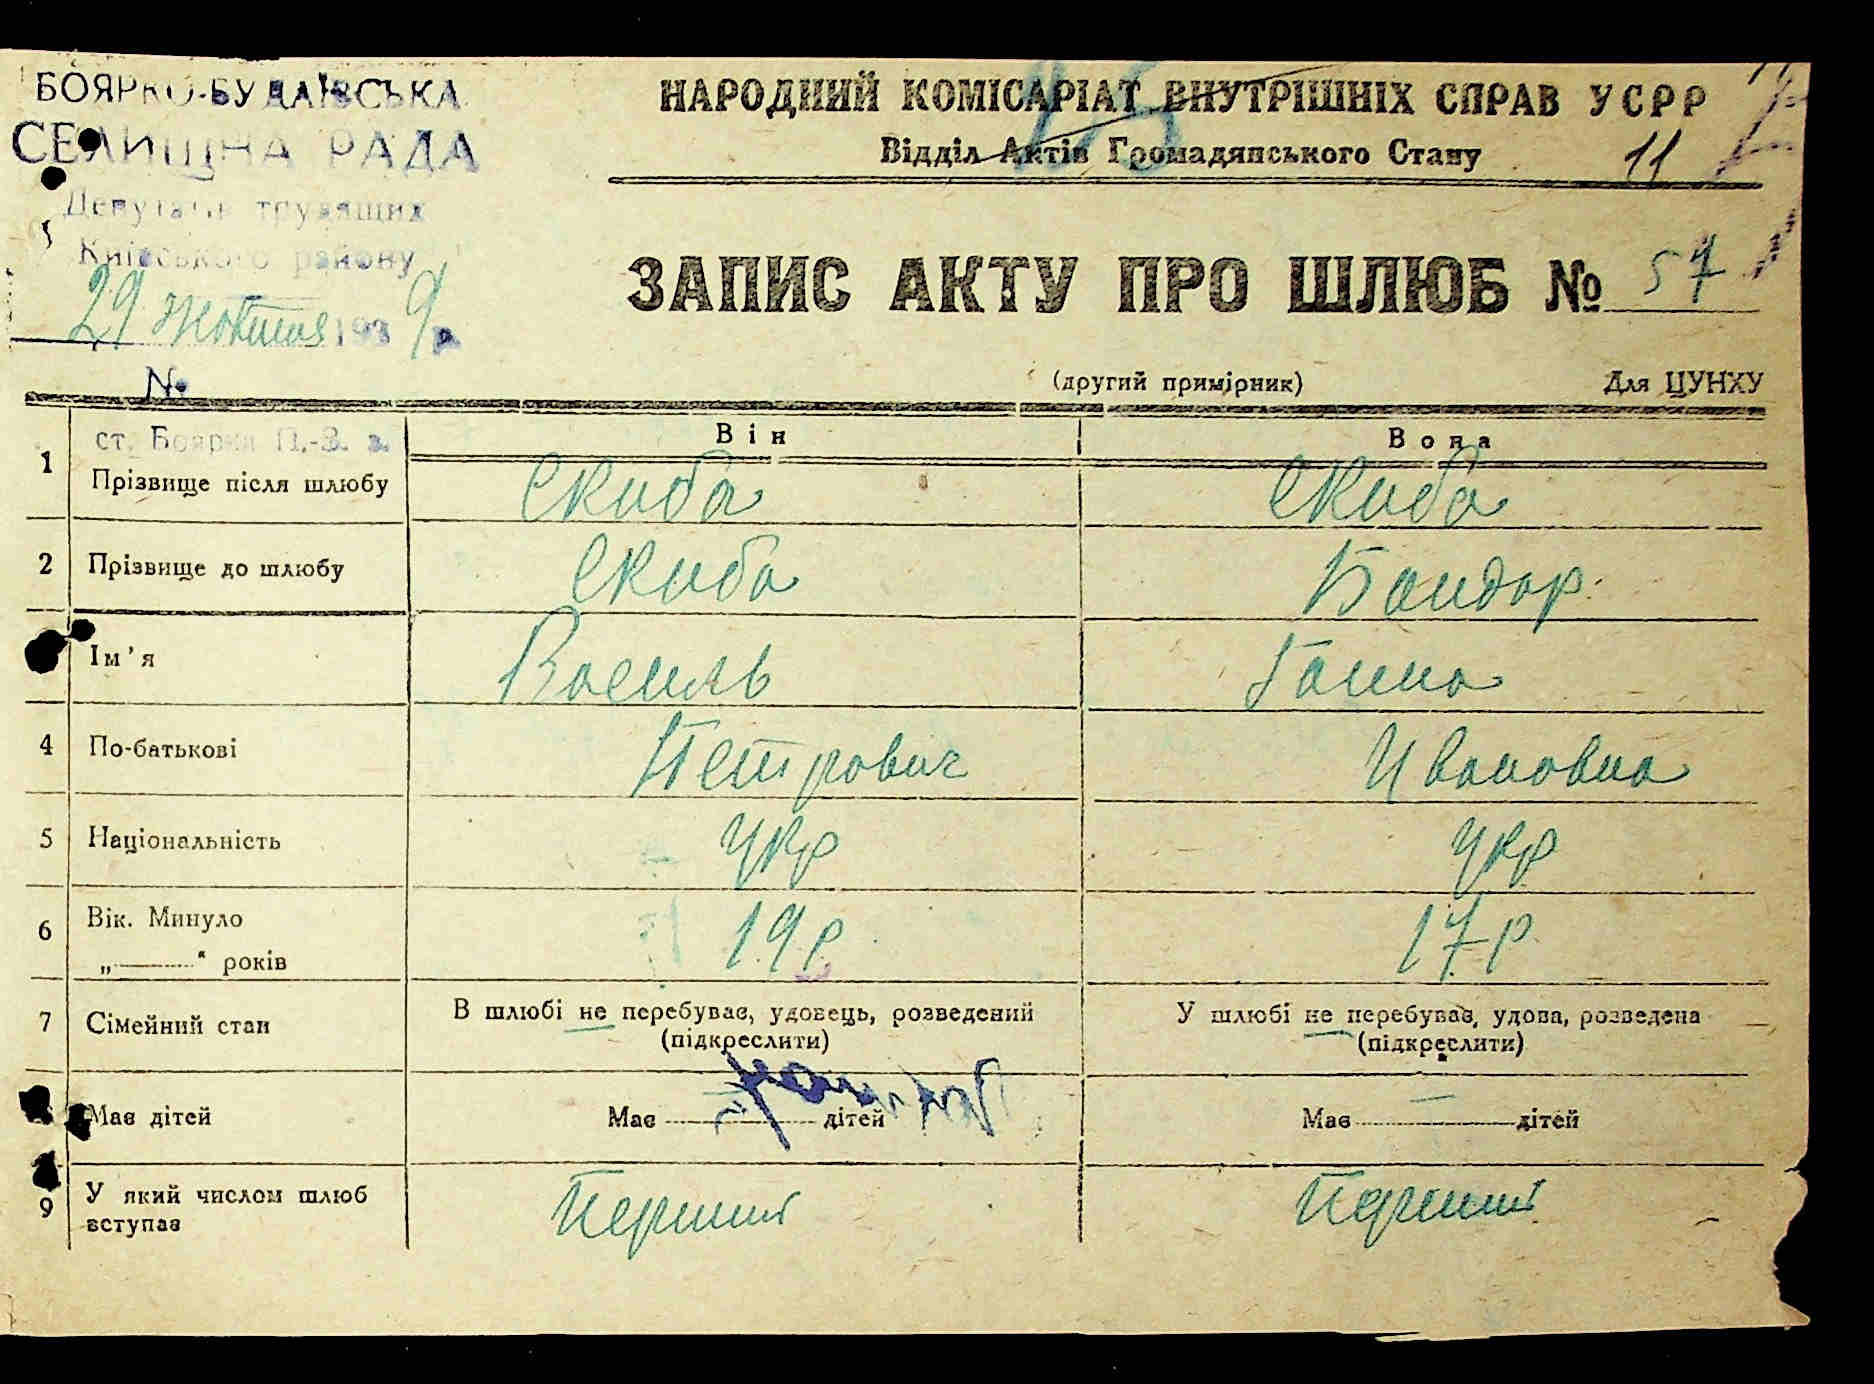 БОЯРКО-БУДАЇВСЬКА
СЕЛИЩНА РАДА
Депутатів трудящих
Київського району
29 жовтня 1939 р.
№
НАРОДНИЙ КОМІСАРІАТ ВНУТРІШНІХ СПРАВ УСРР
Відділ Актів Громадянського Стану 11
ЗАПИС АКТУ ПРО ШЛЮБ № 57
(другий примірник) Для ЦУНХУ
ст. Боярка П.-З. з.
Він Вона
1 Прізвище після шлюбу Скиба Скиба
2 Прізвище до шлюбу Скиба Бондар
Ім'я Василь Ганна
4 По-батькові Петрович Ивановна
5 Національність укр укр
6 Вік. Минуло 19 р. 17 р
„———“ років
7 Сімейний стан В шлюбі не перебуває, удовець, розведений У шлюбі не перебуває, удова, розведена
(підкреслити) (підкреслити)
Має дітей Має дітей Має — дітей
9 У який числом шлюб
вступає Перший Перший